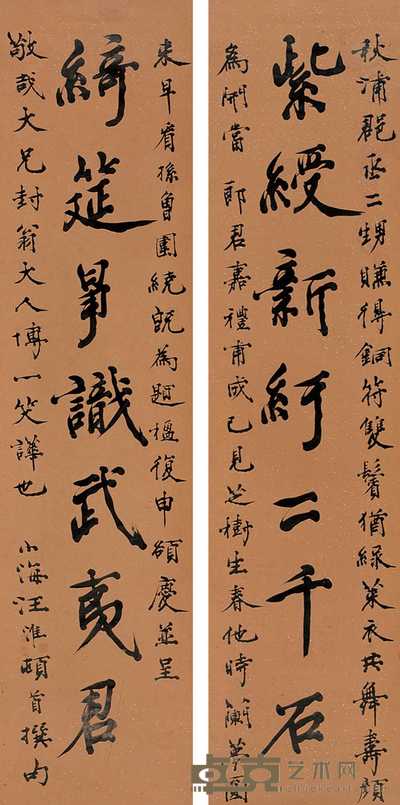 秋浦邑丞二甥賺得銅符雙鬢猶綠萊衣共舞壽顏
紫綬新紆二千石
為開當郎君嘉禮甫成已見芝樹生春他時蘭夢圖
來早看孫曾團繞既為題楹復申頌慶並呈
綺筵爭識武夷君
敬哉大兄封翁大人博一笑譁也
小海汪淮頓首撰句
卓克艺术网